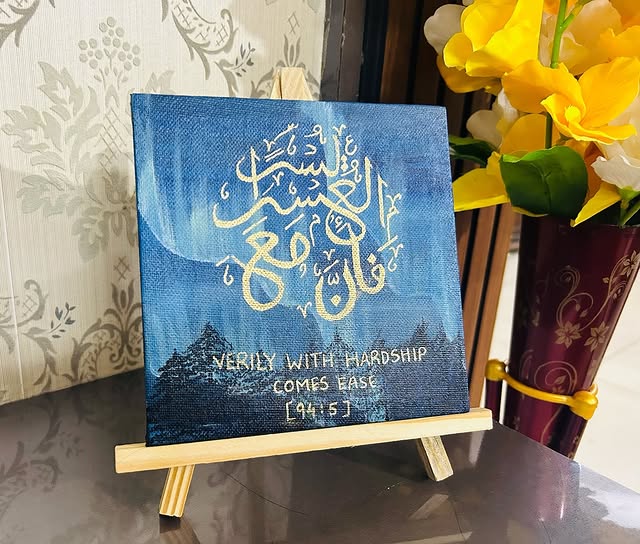 فَإِنَّ مَعَ
الْعُسْرِ
يُسْرًا
VERILY WITH HARDSHIP
COMES EASE
[94:5]